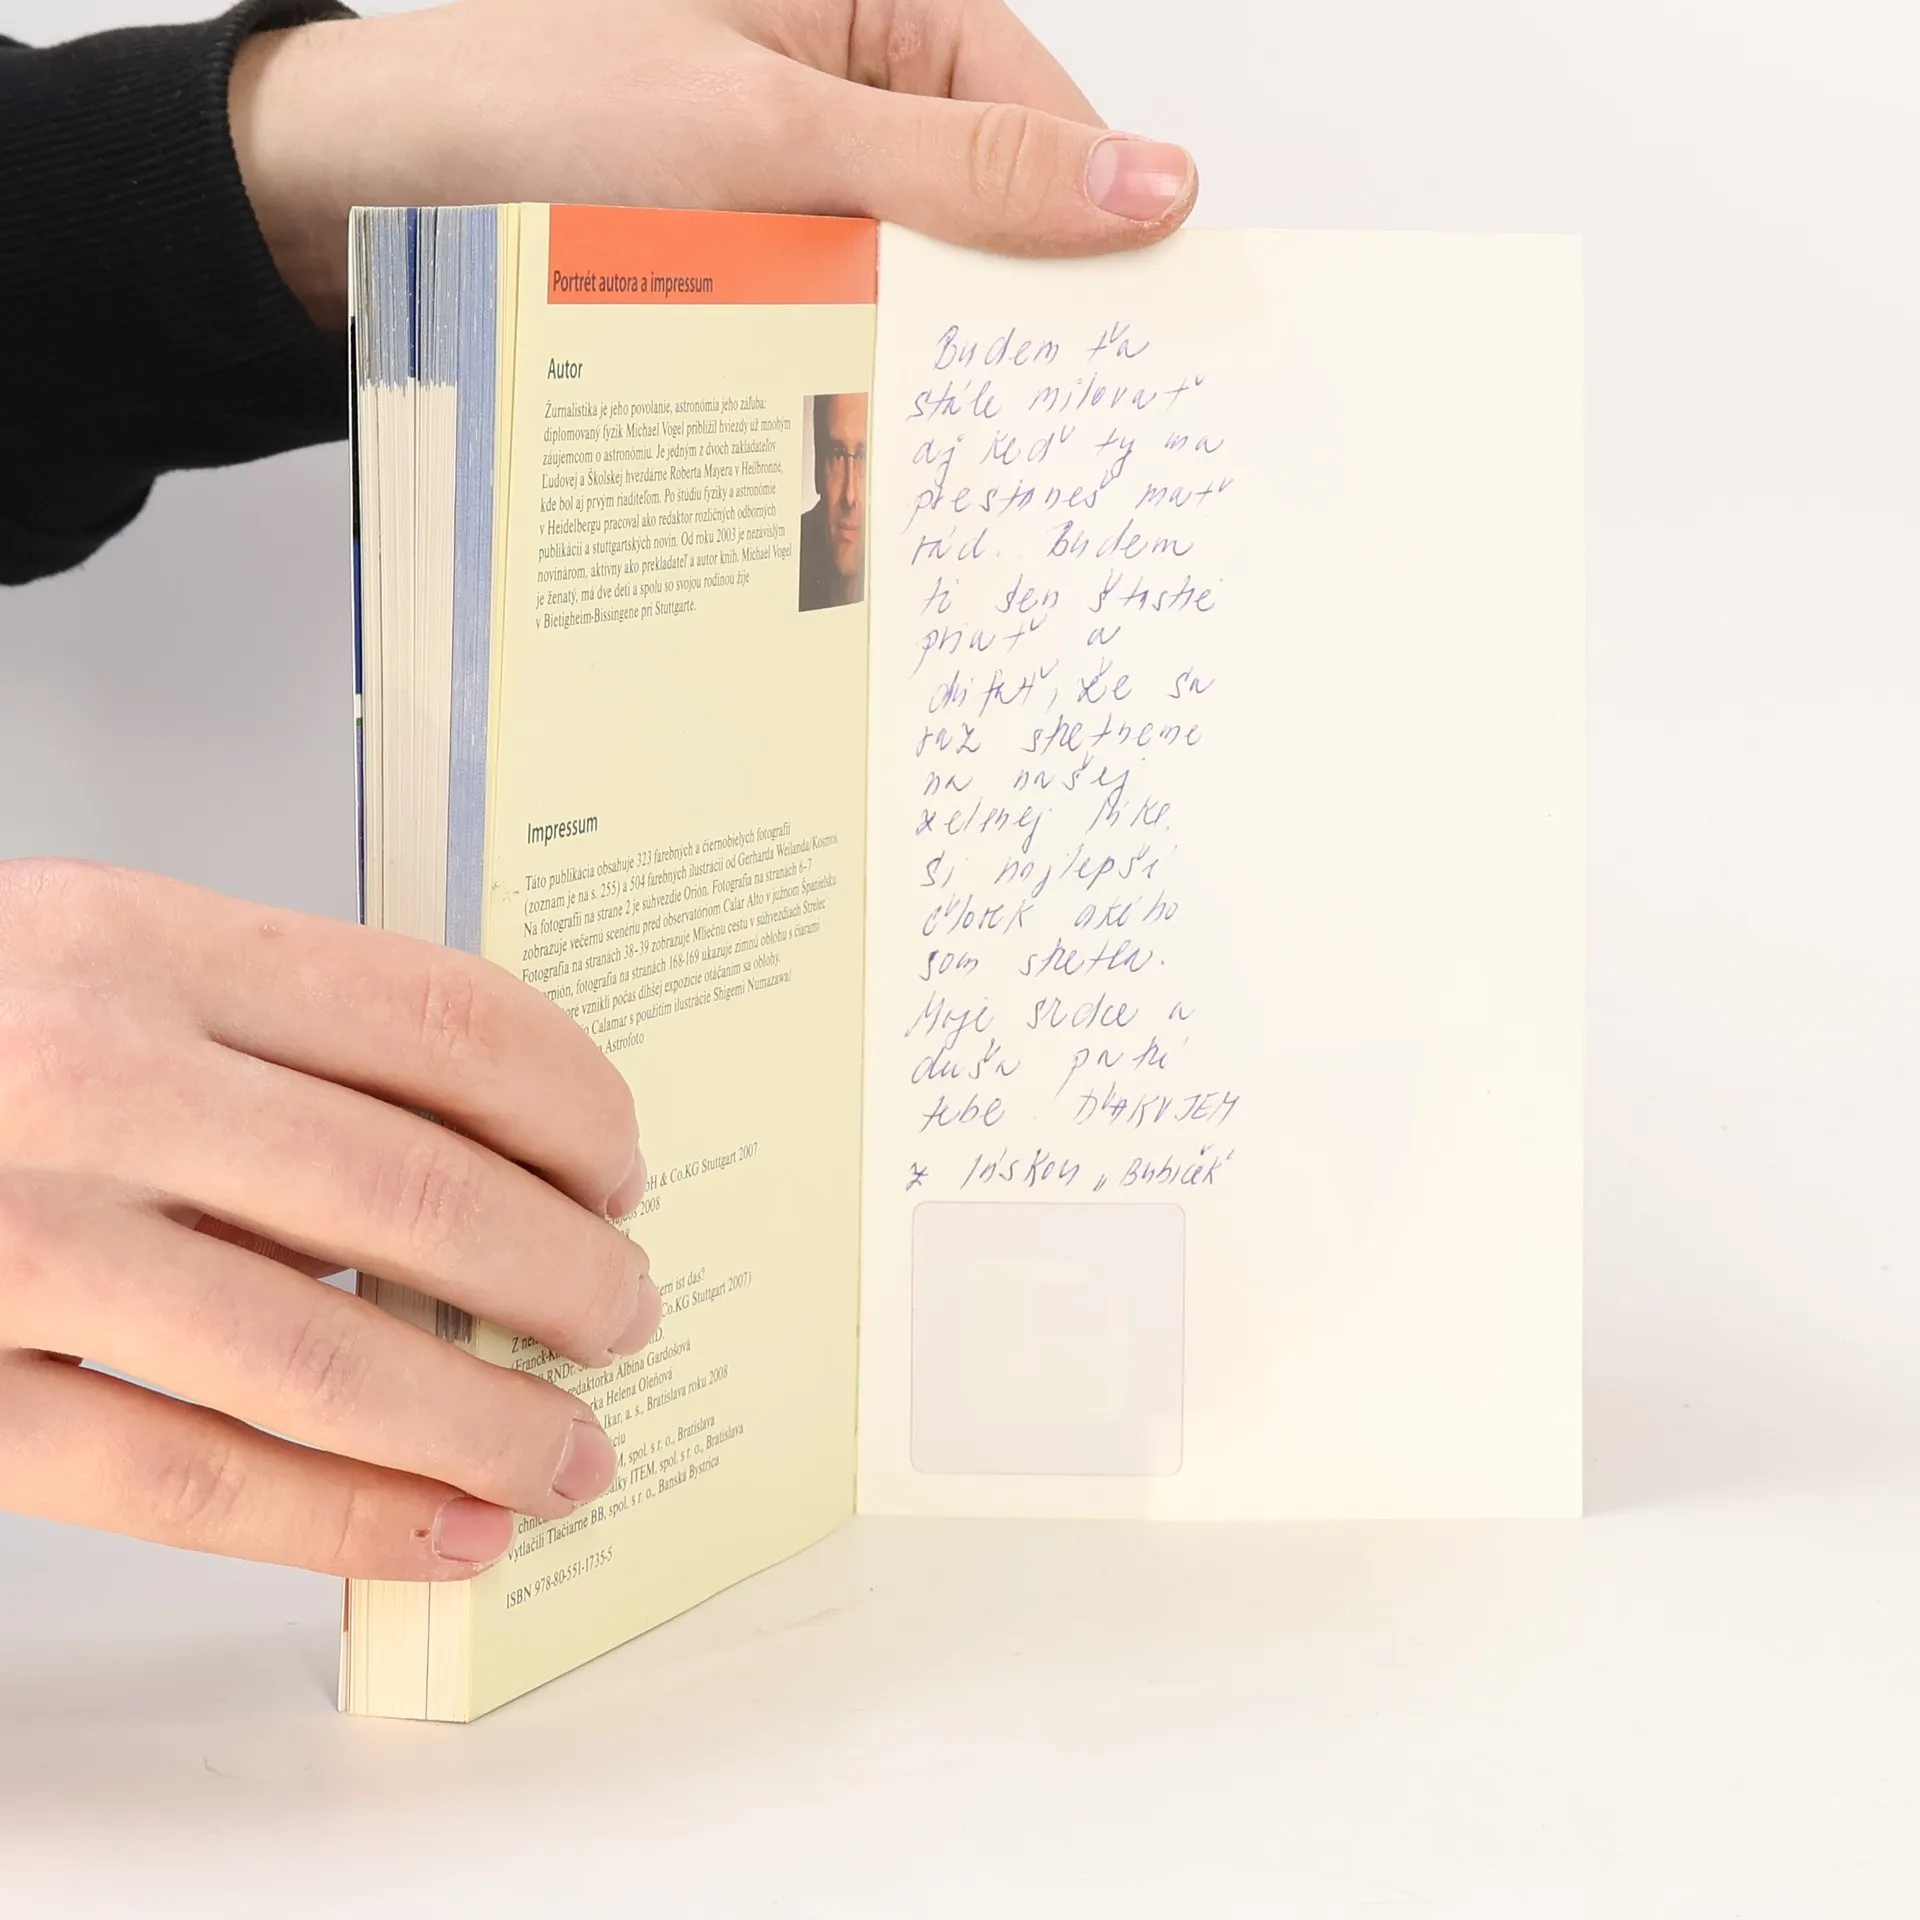 Portrét autora a impressum
Autor
Žurnalistika je jeho povolanie, astronómia jeho záľuba:
diplomovaný fyzik Michael Vogel priblížil hviezdy už mnohým
záujemcom o astronómiu. Je jedným z dvoch zakladateľov
Ľudovej a Školskej hvezdárne Roberta Mayera v Heilbronne,
kde bol aj prvým riaditeľom. Po štúdiu fyziky a astronómie
v Heidelbergu pracoval ako redaktor rozličných odborných
publikácií a stuttgartských novín. Od roku 2003 je nezávislým
novinárom, aktívny ako prekladateľ a autor kníh. Michael Vogel
je ženatý, má dve deti a spolu so svojou rodinou žije
v Bietigheim-Bissingene pri Stuttgarte.
Impressum
Táto publikácia obsahuje 323 farebných a čiernobielych fotografií
(zoznam je na s. 255) a 504 farebných ilustrácií od Gerharda Weilanda/Kosmos.
Na fotografii na strane 2 je súhvezdie Orión. Fotografia na stranách 6–7
zobrazuje večernú scenériu pred observatóriom Calar Alto v južnom Španielsku.
Fotografia na stranách 38–39 zobrazuje Mliečnu cestu v súhvezdiach Strelec
orpión, fotografia na stranách 168-169 ukazuje zimnú oblohu s čiarami
oré vznikli počas dlhšej expozície otáčaním sa oblohy.
Calamar s použitím ilustrácie Shigemi Numazawa/
Astrofoto
bH & Co.KG Stuttgart 2007
2008
ern ist das?
Co.KG Stuttgart 2007)
RNDr.
redaktorka Albína Gardošová
rka Helena Oleňová
Ikar, a. s., Bratislava roku 2008
M, spol. s r. o., Bratislava
ITEM, spol. s r. o., Bratislava
Vytlačili Tlačiarne BB, spol. s r. o., Banská Bystrica
ISBN 978-80-551-1735-5
Budem ťa
stále milovať
aj keď ty ma
prestaneš mať
rád. Budem
ti len šťastie
priať a
dúfať, že sa
raz stretneme
na našej
zelenej lúke.
Si najlepší
človek akého
som stretla.
Moje srdce a
duša patrí
tebe ĎAKUJEM
z láskou „Bubíček"